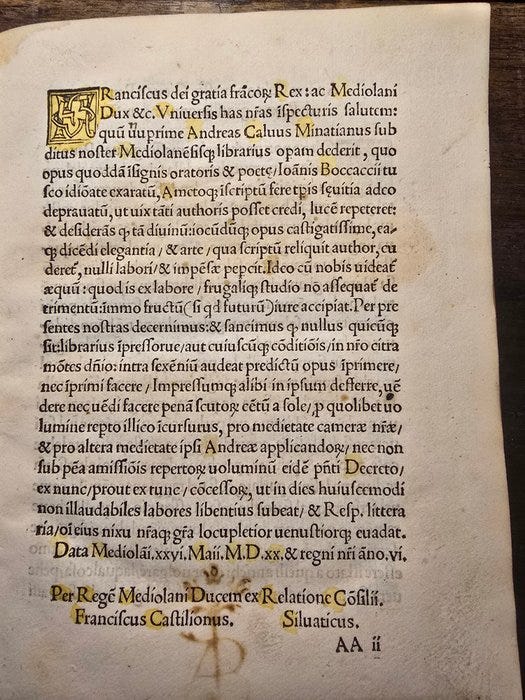 FRanciscus dei gratia frãcoꝝ Rex: ac Mediolani
Dux &c. Vniuersis has nr̃as ĩspecturis salutem:
quũ uuprime Andreas Caluus Minatianus sub
ditus noster Mediolanẽsisq̃ librarius opam dederit, quo
opus quoddã ĩsignis oratoris & poetę/Ioãnis Boccaccii tu
sco idiõate exaratũ, Ametoq̃ ĩscriptũ fere tp̃is sęuitia adeo
deprauatũ, ut uix tãti authoris posset credi, lucẽ repeteret:
& desiderãs q. tã diuinũ: iocũdũq̃ opus castigatissime, ea,
q̃ dicẽdi elegantia, & arte/qua scriptũ reliquit author, cu
deret, nulli labori/& impẽsæ pepcit. Ideo cũ nobis uideat̃
æquũ: quod is ex labore/frugaliq̃ studio nõ asseq̃uat̃ de
trimentũ: immo fructũ (si qd̃ futurũ) iure accipiat. Per pre
sentes nostras decernimus: & sancimus q. nullus quicũq̃
sit: librarius ĩpressorue, aut cuiuscũq̃ cõditiõis, in nr̃o citra
mõtes dñio: intra sexẽniũ audeat predictũ opus ĩprimere,
nec ĩprimi facere/Impressumq̃ alibi in ipsum defferre, uẽ
dere nec uẽdi facere penã scutoꝝ cẽtũ a sole/ꝓ quolibet uo
lumine repto illico ĩcursurus, pro medietate cameræ nr̃æ/
& pro altera medietate ipsi Andreæ applicandoꝝ/nec non
sub pẽa amissiõis repertoꝝ uoluminũ eidẽ pñti Decreto/
ex nunc/prout ex tunc/cõcessoꝝ, ut in dies huiuscemodi
non illaudabiles labores libentius subeat/& Resp. littera
ria/oĩ eius nixu nr̃aq̃ gr̃a locupletior uenustiorq̃ euadat.
Data Mediolãi.xxvi.Maii.M.D.xx.& regni nr̃i ãno.vi.
Per Regẽ Mediolani Ducem ex Relatione Cõsilii.
Franciscus Castilionus. Siluaticus.
AA ii